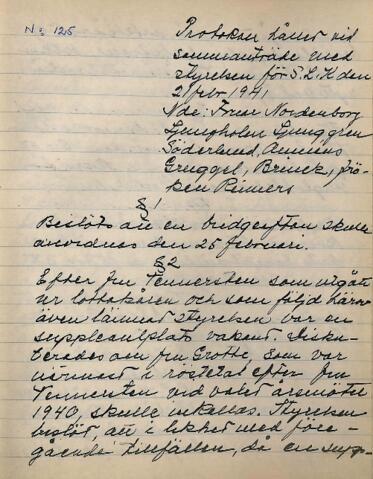 No 125
Protokoll hållet vid
sammanträde med
styrelsen för S.L.K den
21 febr. 1941
Nde: Fruar Nordenborg
Ljungholm Ljunggren
Söderlund,
Gruggel, Brinck, frö-
ken Reimers
§ 1
Beslöts att en bridgeafton skulle
anordnas den 25 februari.
§ 2
Efter fru Tennersten som utgått
ur lottakåren och som följd härav
även lämnat styrelsen var en
suppleantplats vakant. Disku-
terades om fru Grothe, som var
närmast i röstetal efter fru
Tennersten vid valet årsmötet
1940, skulle inkallas. Styrelsen
beslöt, att i likhet med före-
gående tillfällen, då en supp-